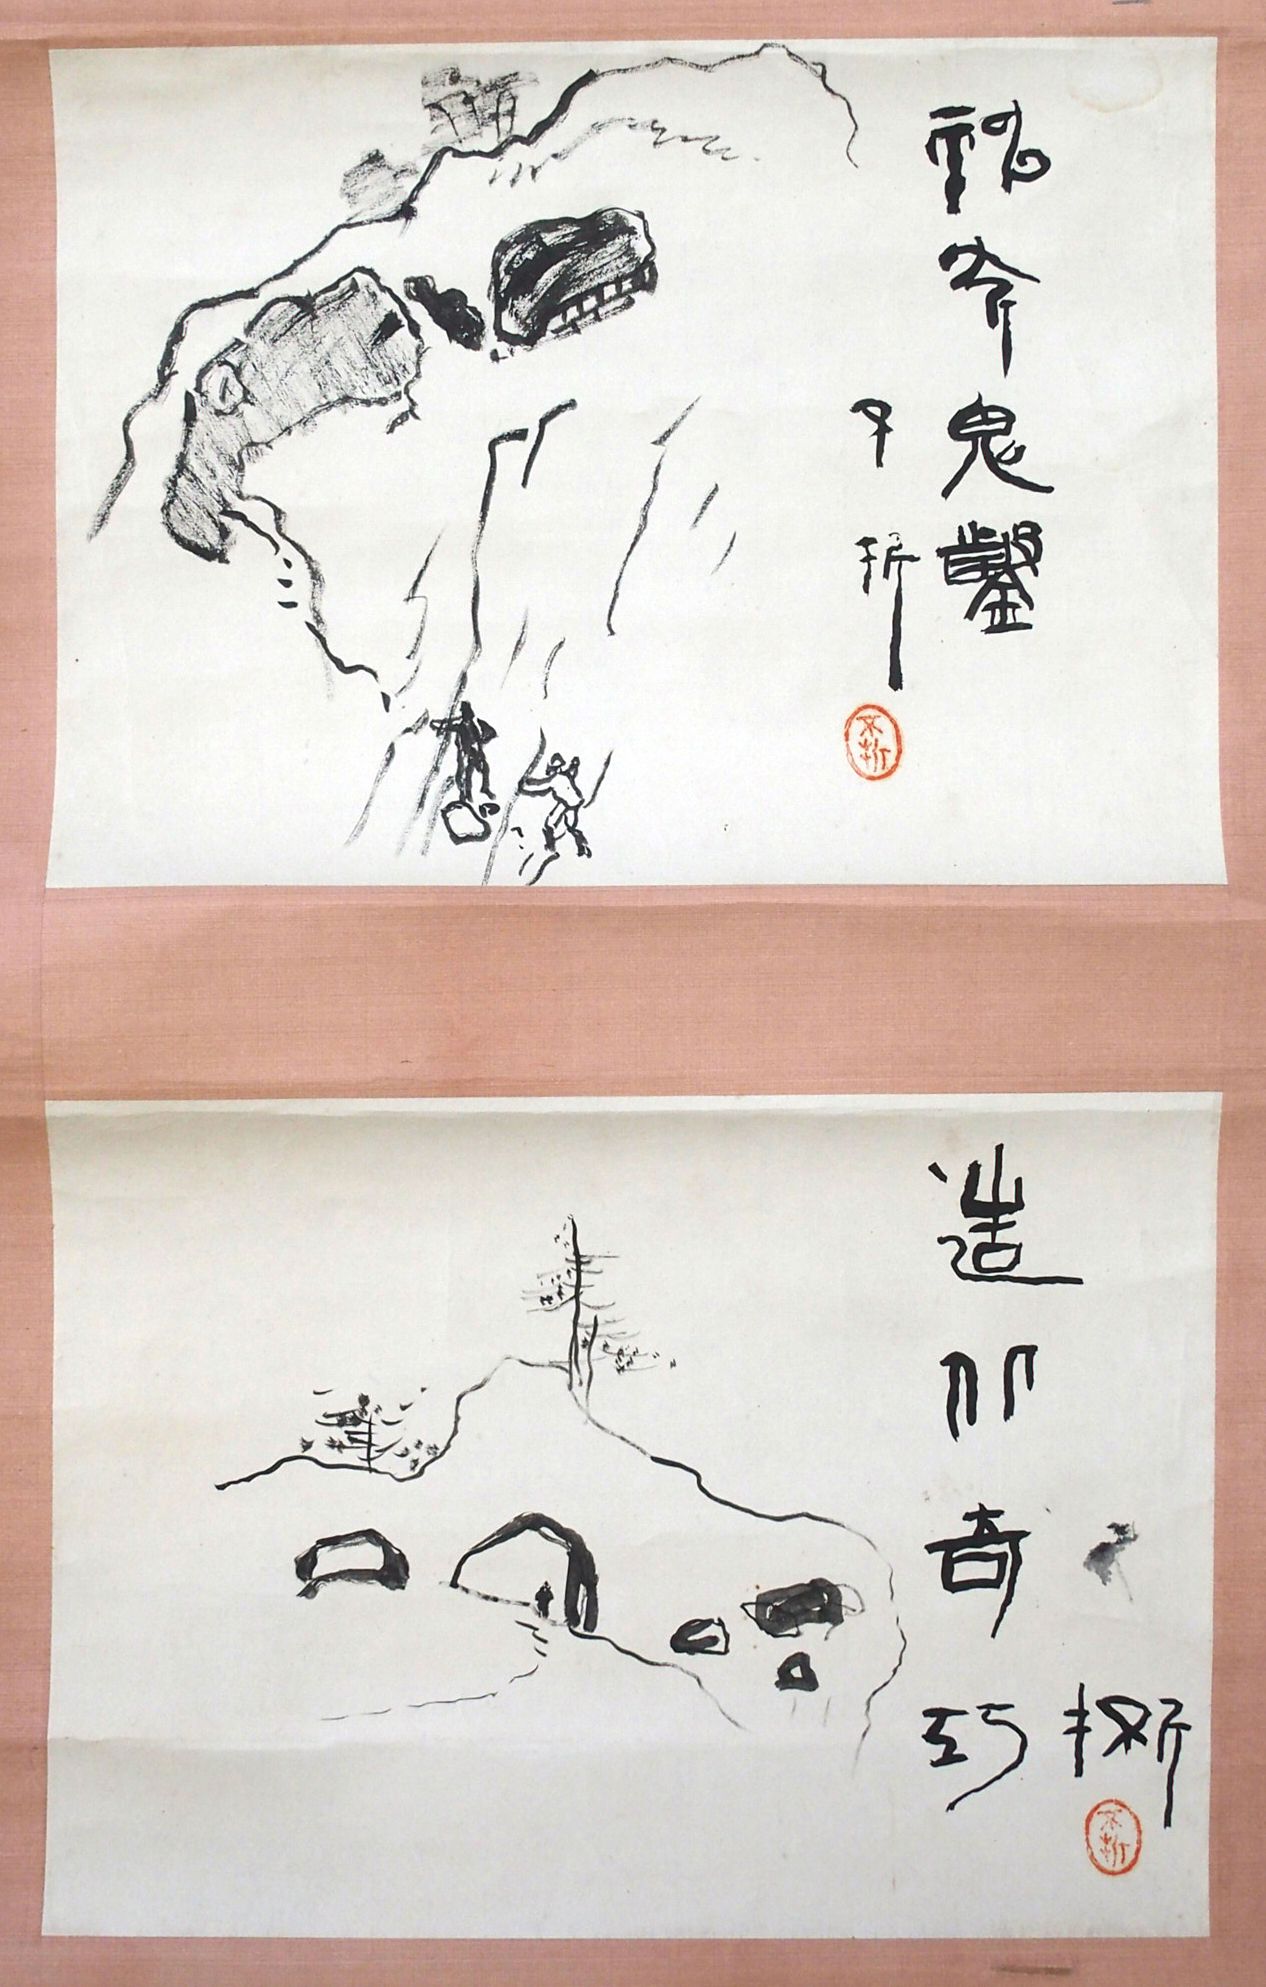 神斧鬼鑿
不折
不折
造化奇巧
不折
不折